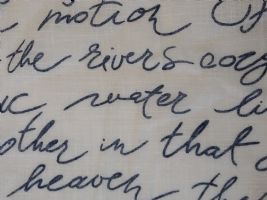 motion of
the rivers
water
other in that
heaven